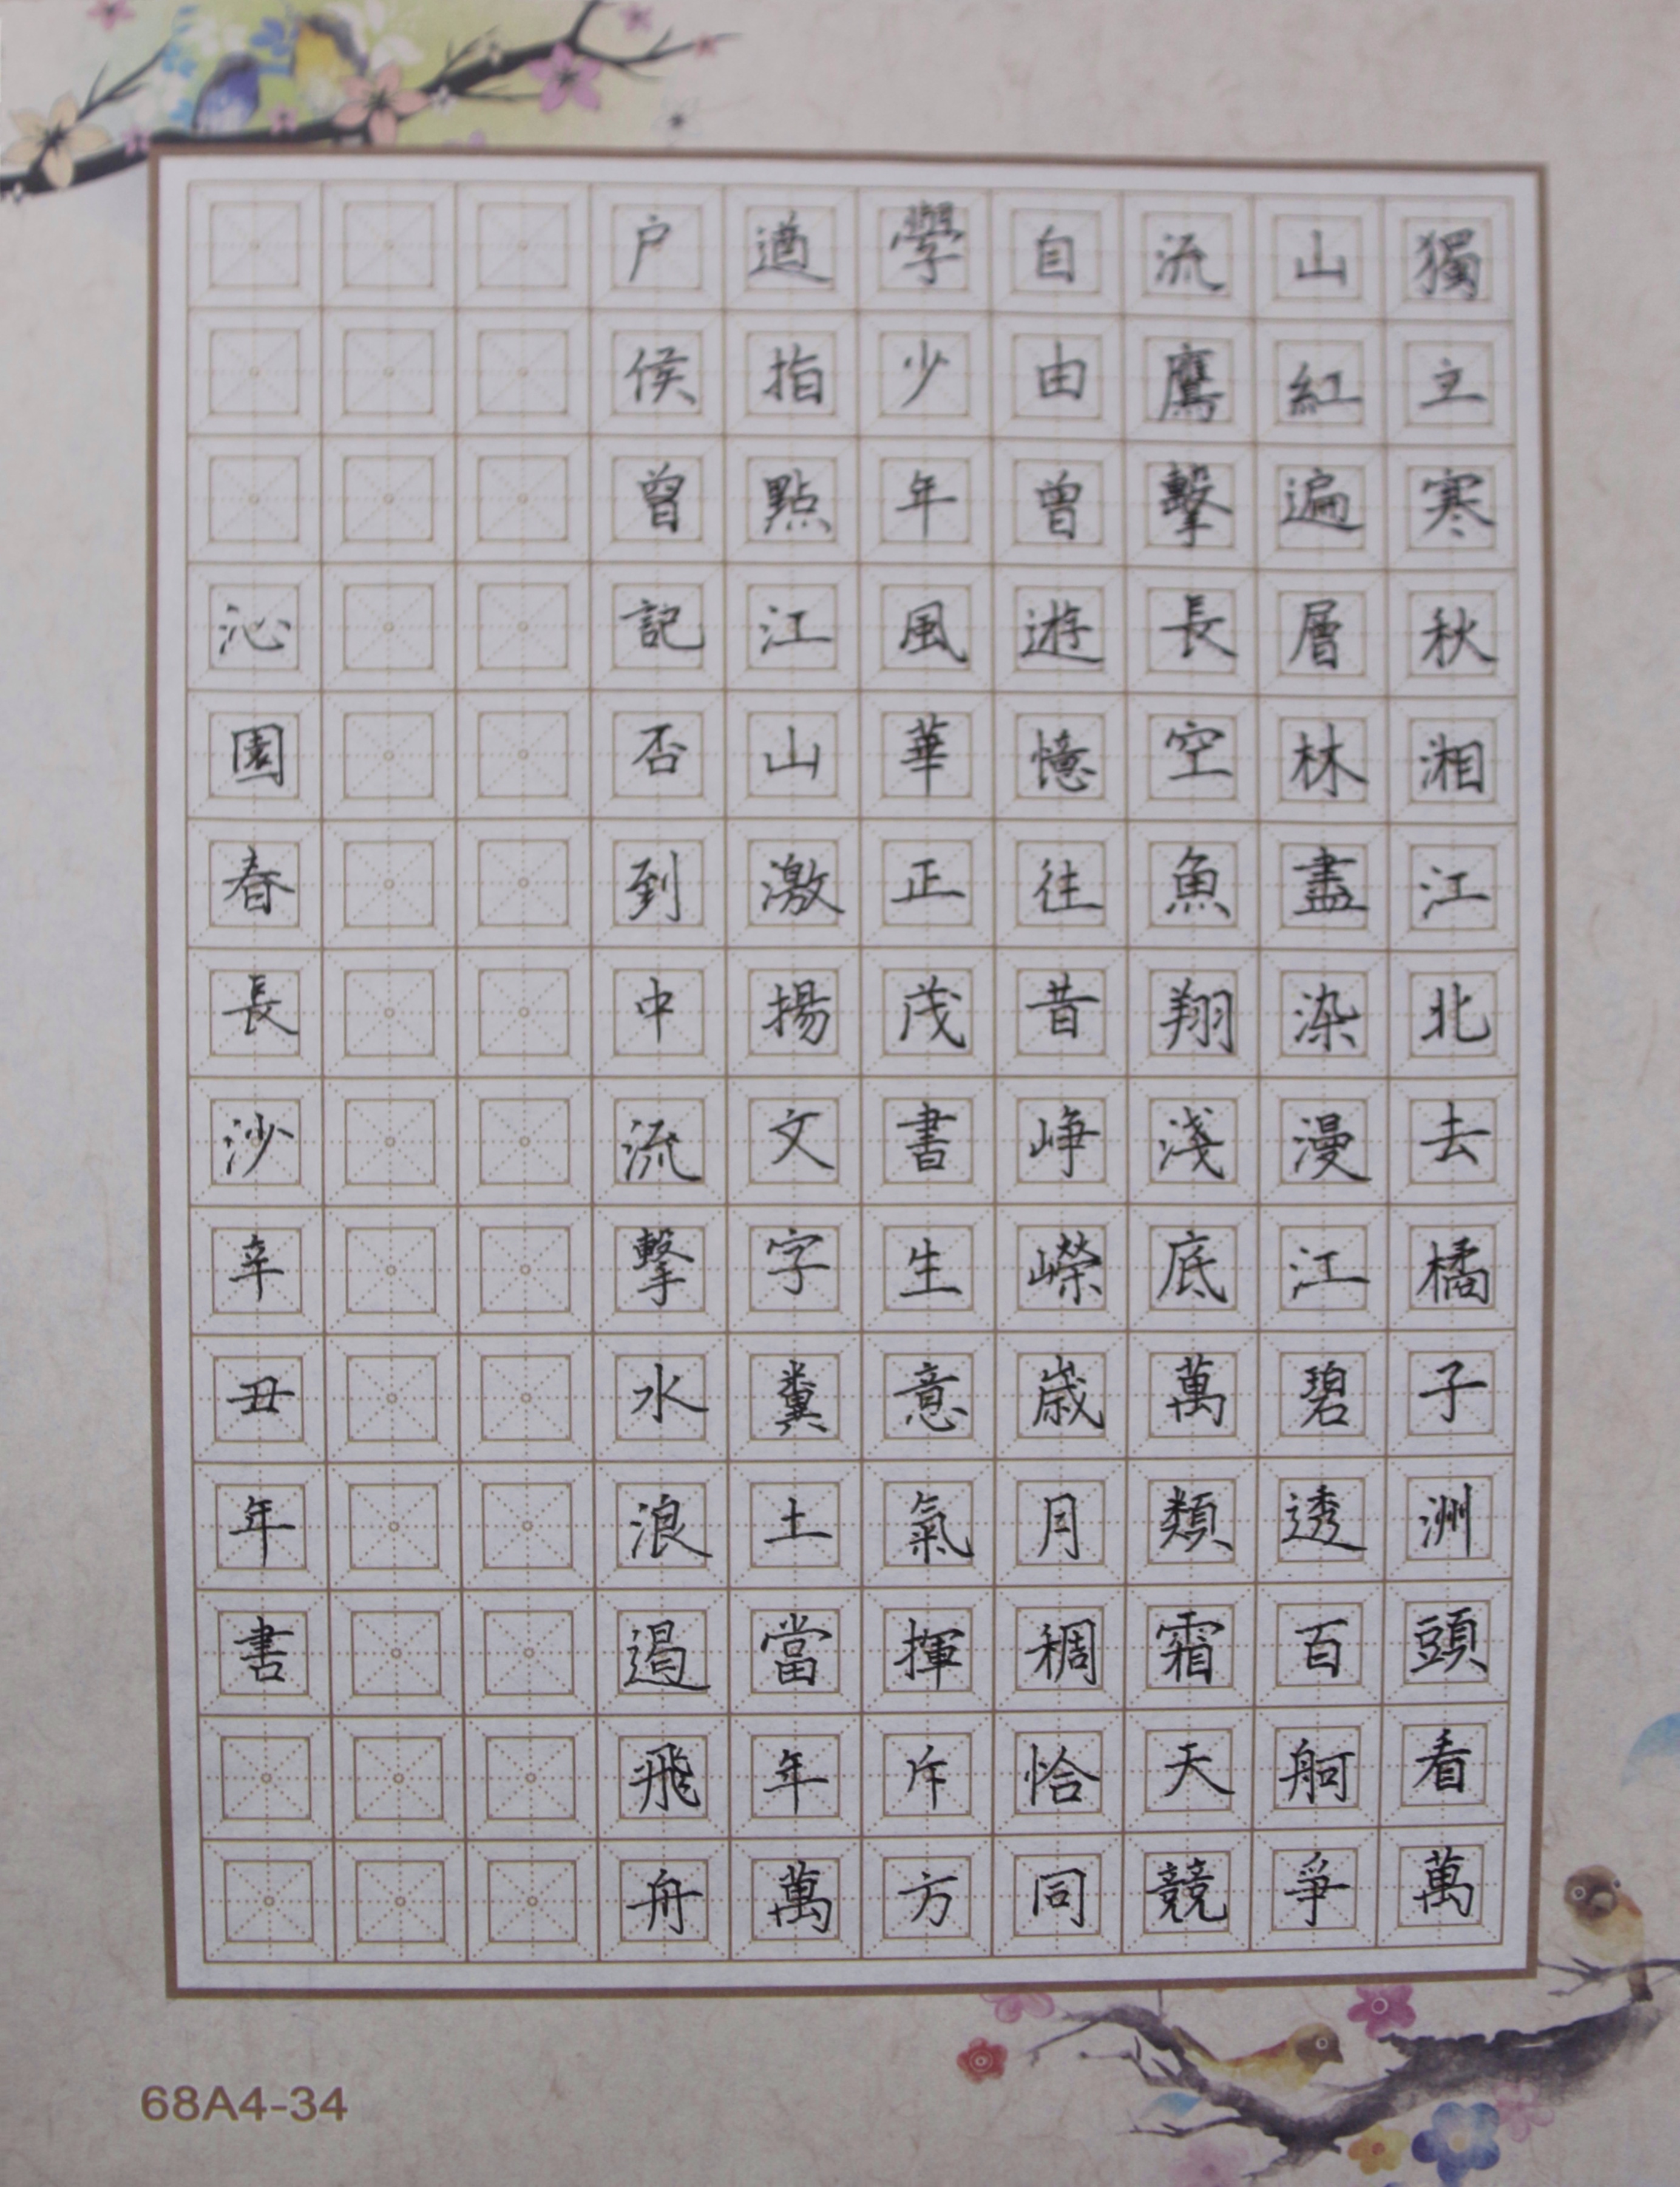 獨立寒秋湘江北去橘子洲頭看萬
山紅遍層林盡染漫江碧透百舸爭
流鷹擊長空魚翔淺底萬類霜天競
自由曾遊憶往昔崢嶸歲月稠恰同
學少年風華正茂書生意氣揮斥方
遒指點江山激揚文字糞土當年萬
户侯曾記否到中流擊水浪遏飛舟
沁園春長沙辛丑年書
68A4-34